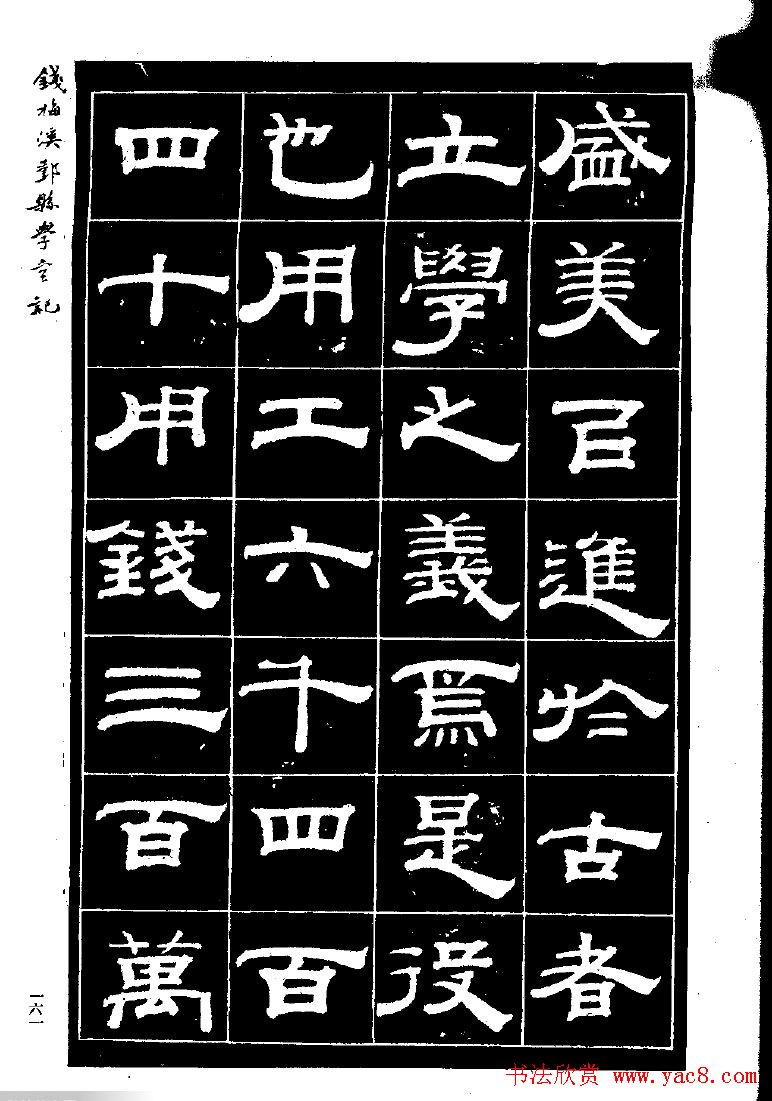 盛美㠯進於古者
立學之義焉是役
也用工六千四百
四十用錢三百萬
錢梅溪鄞縣學宮記
一六一
书法欣赏 www.yac8.com